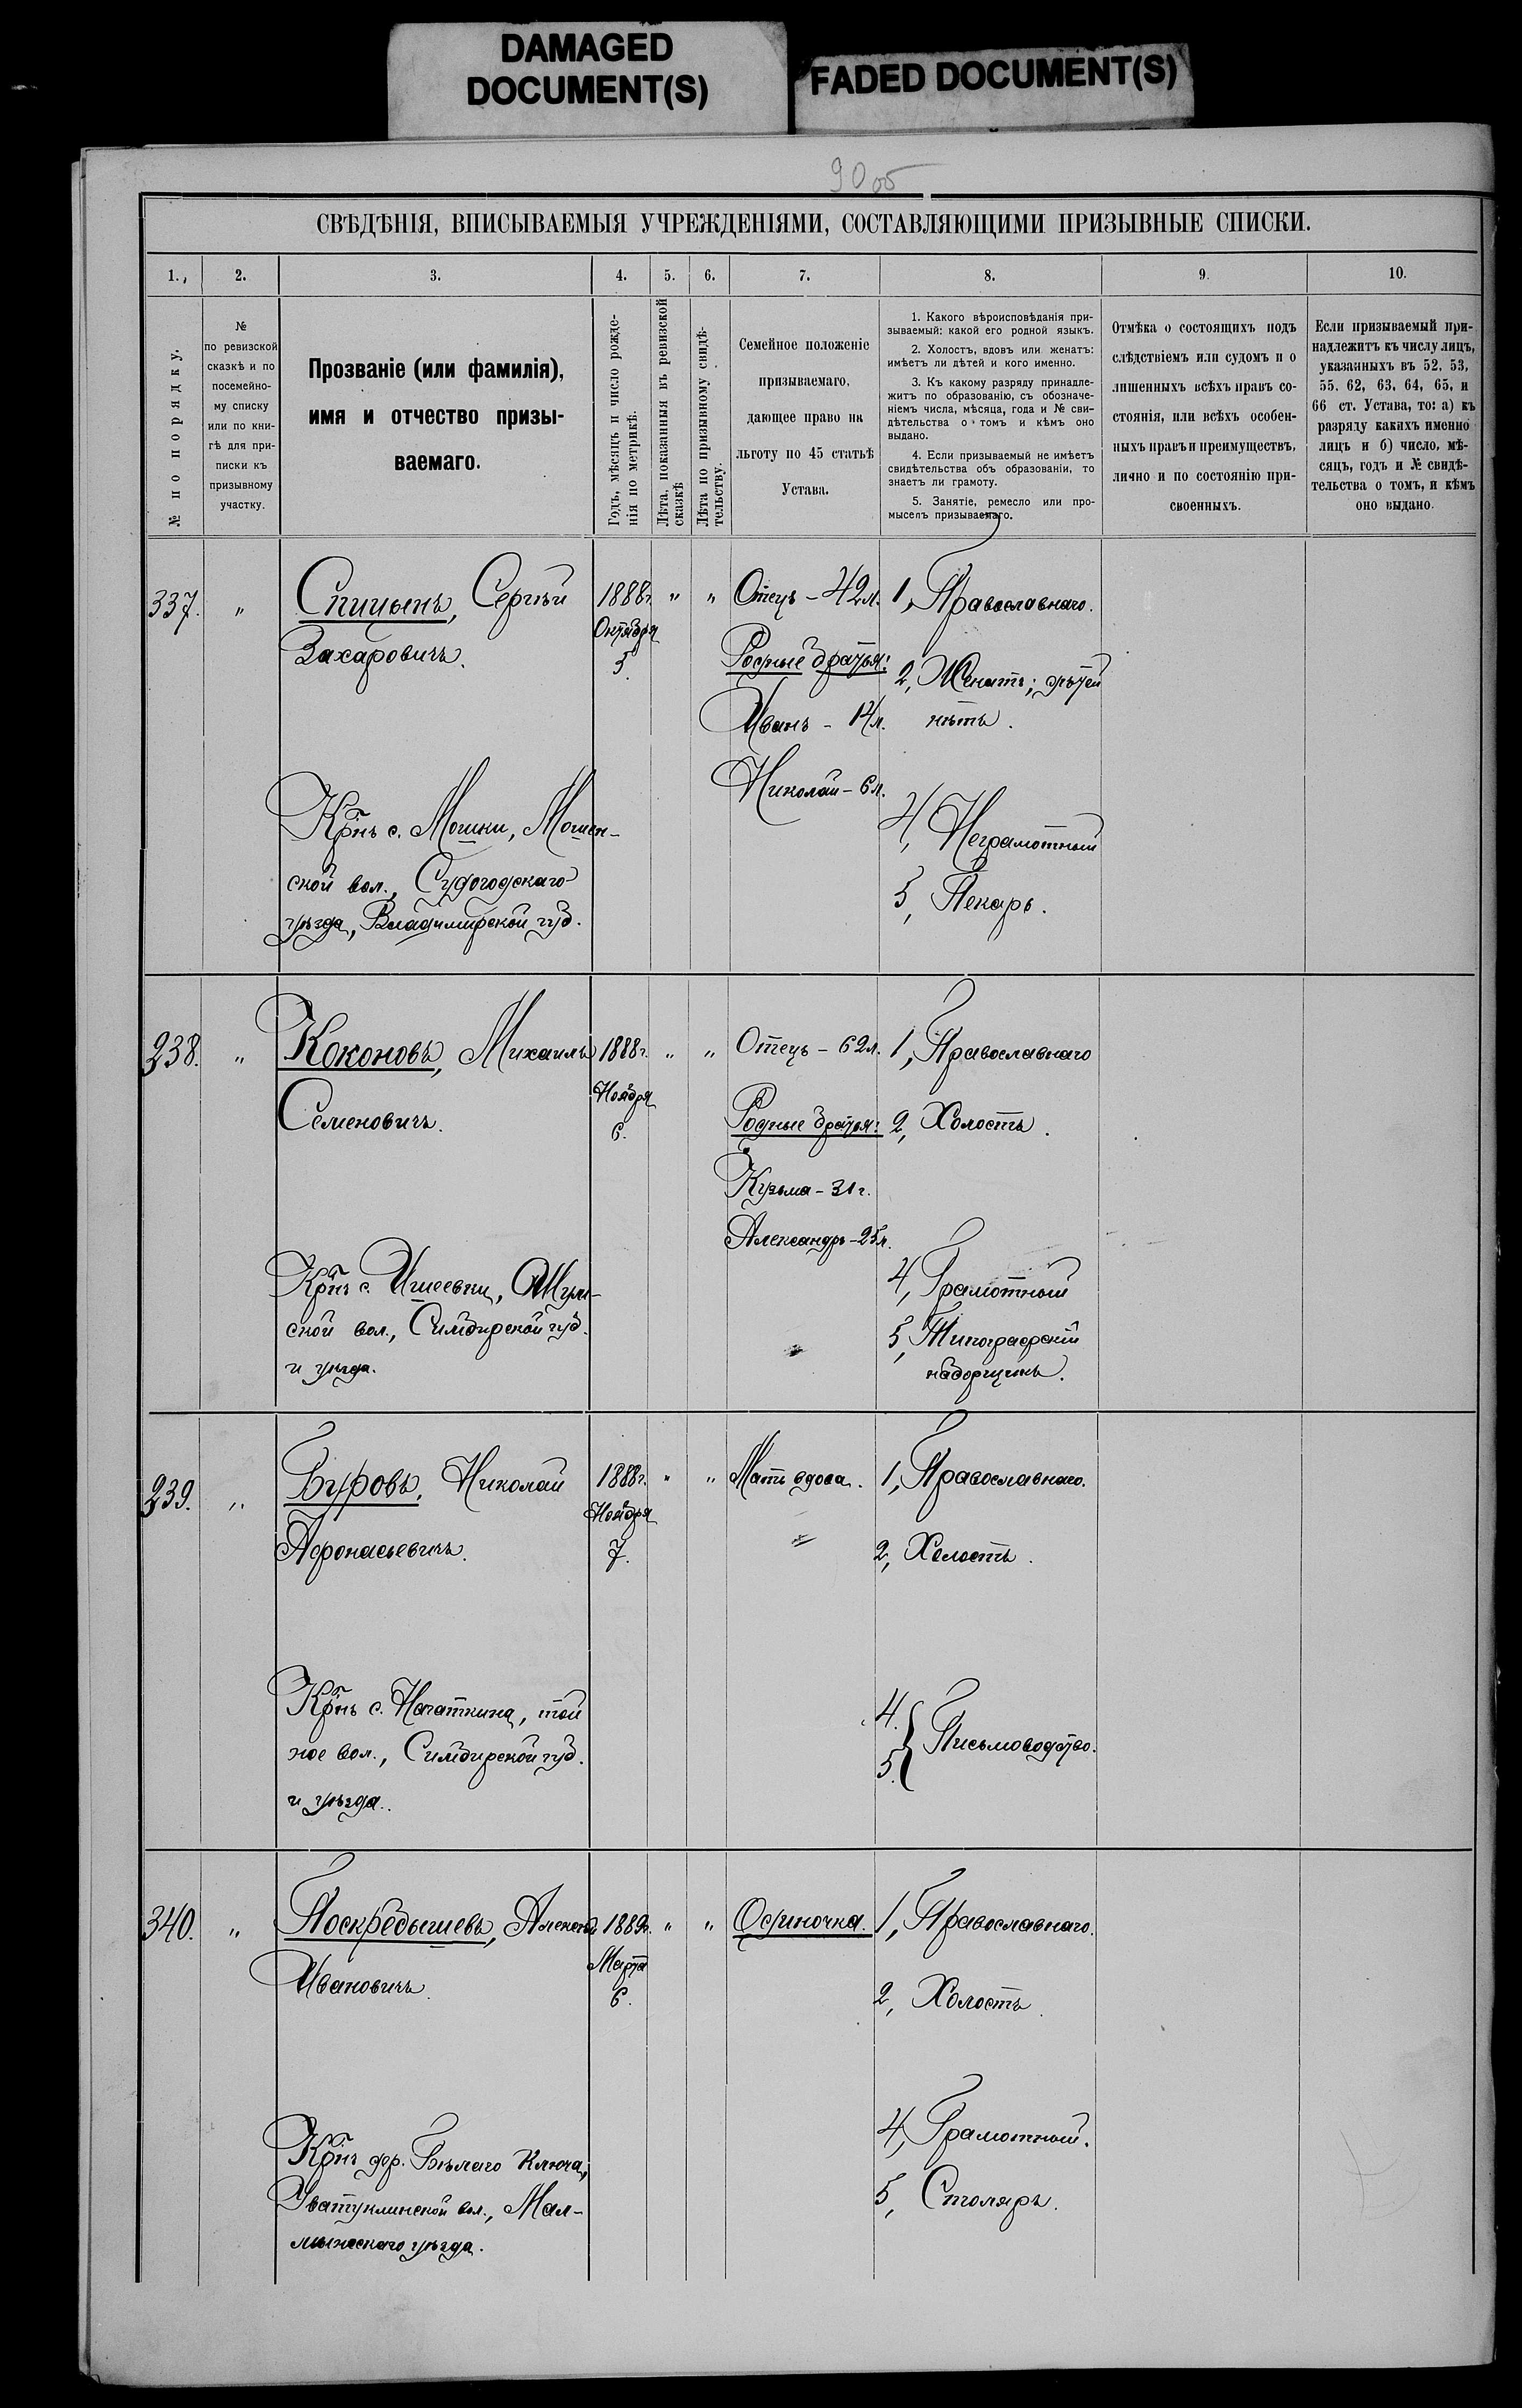 DAMAGED
DOCUMENT(S)
FADED DOCUMENT(S)
90 об
СВѢДѢНІЯ, ВПИСЫВАЕМЫЯ УЧРЕЖДЕНІЯМИ, СОСТАВЛЯЮЩИМИ ПРИЗЫВНЫЕ СПИСКИ.
1. 2. 3. 4. 5. 6. 7. 8. 9. 10.
№ по порядку.
№
по ревизской
сказкѣ и по
посемейно-
му списку
или по кни-
гѣ для при-
писки къ
призывному
участку.
Прозваніе (или фамилія),
имя и отчество призы-
ваемаго.
Годъ, мѣсяцъ и число рожде-
нія по метрикѣ.
Лѣта, показанныя въ ревизской
сказкѣ
Лѣта по призывному свидѣ-
тельству.
Семейное положеніе
призываемаго,
дающее право на
льготу по 45 статьѣ
Устава.
1. Какого вѣроисповѣданія при-
зываемый: какой его родной языкъ.
2. Холостъ, вдовъ или женатъ:
имѣетъ ли дѣтей и кого именно.
3. Къ какому разряду принадле-
житъ по образованію, съ обозначе-
ніемъ числа, мѣсяца, года и № сви-
дѣтельства о томъ и кѣмъ оно
выдано.
4. Если призываемый не имѣетъ
свидѣтельства объ образованіи, то
знаетъ ли грамоту.
5. Занятіе, ремесло или про-
мыселъ призываемаго.
Отмѣка о состоящихъ подъ
слѣдствіемъ или судомъ и о
лишенныхъ всѣхъ правъ со-
стоянія, или всѣхъ особен-
ныхъ правъ и преимуществъ,
лично и по состоянію при-
своенныхъ.
Если призываемый при-
надлежитъ къ числу лицъ,
указанныхъ въ 52, 53,
55, 62, 63, 64, 65, и
66 ст. Устава, то: а) къ
разряду какихъ именно
лицъ и б) число, мѣ-
сяцъ, годъ и № свидѣ-
тельства о томъ, и кѣмъ
оно выдано.
337. " Спицынъ, Сергѣй 1888г. " " Отецъ - 42л. 1, Православнаго.
Захаровичъ. Октября 5. Родные братья: 2, Женатъ; дѣтей
Иванъ - 14л. нѣтъ.
Николай - 6л.
Крнъ с. Мошки, Мошен-
ской вол., Судогодскаго
уѣзда, Владимирской губ.
4, Неграмотный
5, Пекарь.
238. " Коконовъ, Михаилъ 1888г. " " Отецъ - 62л. 1, Православнаго
Семеновичъ. Ноября 6. Родные братья: 2, Холостъ.
Кузьма - 31г.
Александръ - 25л.
Крнъ с. Ишеевки,
ской вол., Симбирской губ.
и уѣзда.
4, Грамотный
5, Типографскій
наборщикъ.
239. " Буровъ, Николай 1888г. " " Мать вдова. 1, Православнаго.
Афонасьевичъ. Ноября 7. 2, Холостъ.
Крнъ с. Нагаткина, той
же вол., Симбирской губ.
и уѣзда.
4. 5. } Письмоводство.
340. " Поскребышевъ, Алексѣй 1889г. " " Одиночка. 1, Православнаго.
Ивановичъ. Марта 6. 2, Холостъ.
Крнъ дер. Бѣлаго Ключа,
вол., Мал-
мыжскаго уѣзда.
4, Грамотный.
5, Столяръ.